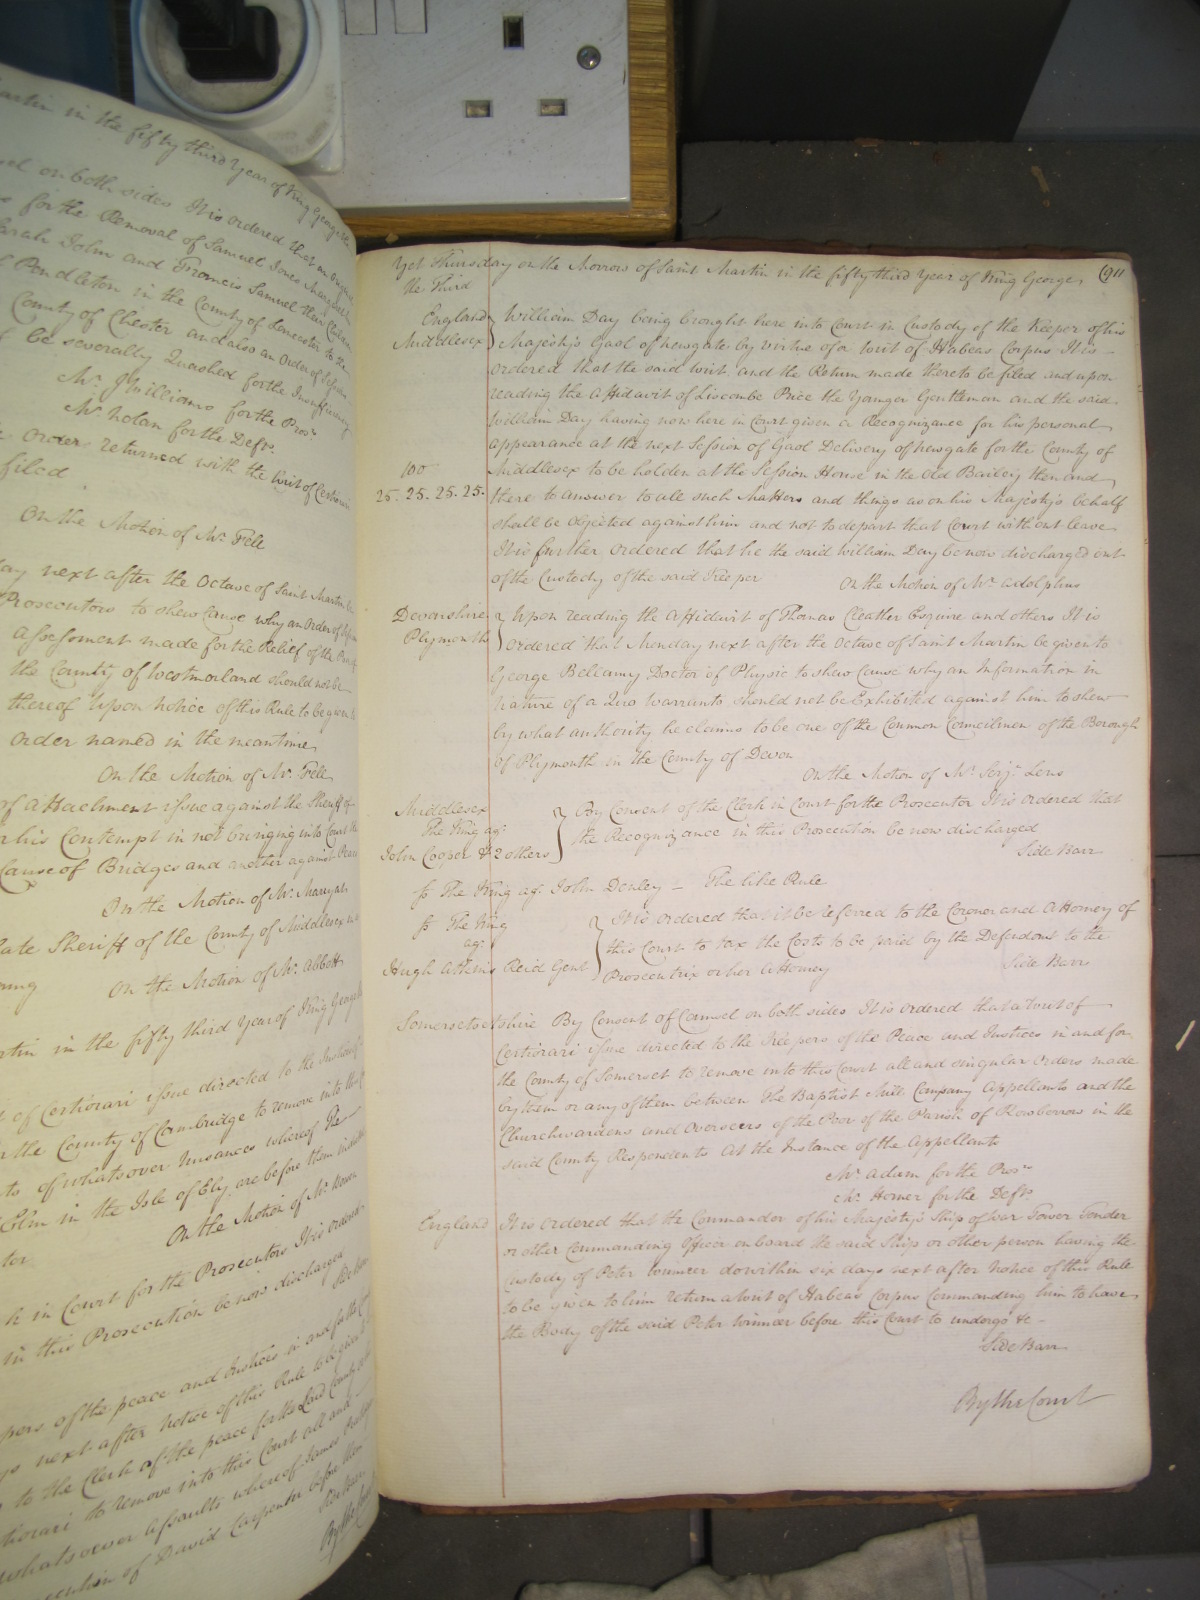 artin in the fifty third Year of King George the
el on both sides It is ordered that an Order
for the Removal of Samuel Jones Margaret
Sarah John and Frances Samuel their Children
Pendleton in the County of Lancaster to the
County of Chester and also an Order of Session
be severally Quashed for the Insufficiency
Mr. J Williams for the Prosr.
Mr. Nolan for the Defts.
Order returned with the Writ of Certiorari
filed
On the Motion of Mr. Fell
ay next after the Octave of Saint Martin be
Prosecutors to shew Cause why an Order of
assessment made for the Relief of the Poor
the County of Westmorland should not be
thereof Upon Notice of this Rule to be given to
Order named in the meantime
On the Motion of Mr. Fell
of attachment issue against the Sheriff of
his Contempt in not bringing into Court the
Cause of Bridges and another against
On the Motion of Mr. Marryat
late Sheriff of the County of Middlesex
On the Motion of Mr. Abbott
artin in the fifty third Year of King George
of Certiorari issue directed to the Justices
the County of Cambridge to remove into this
of whatsoever Nuisances whereof the
Elm in the Isle of Ely are before them
On the Motion of Mr.
tor
in Court for the Prosecutors It is ordered
in this Prosecution be now discharged
Side Barr
pers of the peace and Justices in and for the
next after notice of this Rule to be given
to the Clerk of the peace for the said County
tiorari to remove into this Court all and
whatsoever Assaults whereof James
cution of David Carpenter before them
Side Barr
By the Court
Yet Thursday on the Morrow of Saint Martin in the fifty third Year of King George 911
the Third
England Middlesex } William Day being brought here into Court in Custody of the Keeper of his
Majesty's Gaol of Newgate by virtue of a Writ of Habeas Corpus It is
ordered that the said writ and the Return made thereto be filed and upon
reading the Affidavit of Liscombe Price the Younger Gentleman and the said
William Day having now here in Court given a Recognizance for his personal
appearance at the next Session of Gaol Delivery of Newgate for the County of
100 Middlesex to be holden at the Session House in the Old Bailey then and
25. 25. 25. 25. there to answer to all such Matters and things as on his Majesty's behalf
shall be objected against him and not to depart that Court without leave
It is further ordered that he the said William Day be now discharged out
of the Custody of the said Keeper On the Motion of Mr Adolphus
Devonshire Plymouth } Upon reading the Affidavit of Thomas Cleather Esquire and others It is
ordered that Monday next after the Octave of Saint Martin be given to
George Bellamy Doctor of Physic to shew Cause why an Information in
Nature of a Quo Warranto should not be Exhibited against him to shew
by what authority he claims to be one of the Common Councilmen of the Borough
of Plymouth in the County of Devon
On the Motion of Mr. Serjt. Lens
Middlesex
The King agt. } By Consent of the Clerk in Court for the Prosecutor It is ordered that
John Cooper & 2 others the Recognizance in this Prosecution be now discharged
Side Barr
ss The King agt. John Denley – The like Rule
ss The King } It is ordered that it be referred to the Coroner and Attorney of
agt. this Court to tax the Costs to be paid by the Defendant to the
Hugh Atkins Reid Gent Prosecutrix or her Attorney Side Barr
Somersetshire By Consent of Counsel on both sides It is ordered that a Writ of
Certiorari issue directed to the Keepers of the Peace and Justices in and for
the County of Somerset to remove into this Court all and singular Orders made
by them or any of them between The Baptist Mill Company Appellants and the
Churchwardens and Overseers of the Poor of the Parish of Rowborrow in the
said County Respondents At the Instance of the Appellants
Mr. Adam for the Prosr.
Mr. Horner for the Defts.
England It is ordered that the Commander of his Majesty's Ship of War Tower Tender
or other Commanding Officer on board the said Ship or other person having the
Custody of Peter Winner do within six days next after Notice of this Rule
to be given to him return a Writ of Habeas Corpus Commanding him to have
the Body of the said Peter Winner before this Court to undergo &c
Side Barr
By the Court